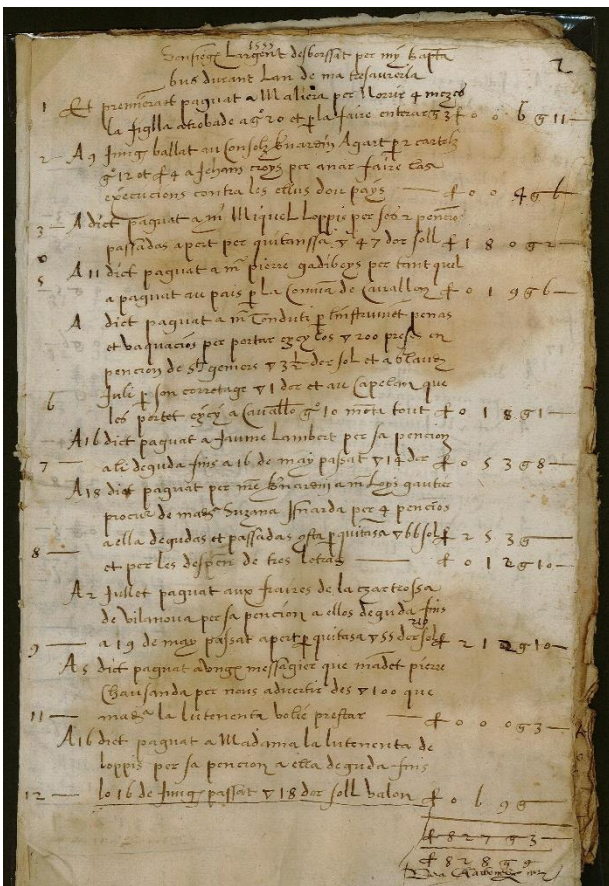 1555
Sensieg Largent desborssat per my bapta
bus durant Lan de ma tresauraria
2
1 Et premierant paguat a Maliera per Norrir 4 mezes
la figlla atrobade a g 20 et per la faire enterar g 3 f 0 0 6 g 11
2 A 9 Jung ballat au Consolz bnardin Agart per 2 cartelz
g 12 et f 4 a Jeham croys per anar faire las
execucions contra les ellus dou pays f 0 0 4 g 6
3 A dict paguat a mr Miquel Loppis per ses 2 pencions
passadas apert per quitanssa v 47 dor soll f 1 8 0 g 2
5 A 11 dict paguat a mr pierre gadibeys per tant quel
a paguat au pais per la Comuna de Cavallon f 0 1 9 g 6
A dict paguat a mr per linstrument penas
et vaquacios per portar eycy los v 200 preses en
pencion de St geniers v 3 dor sol et a
6 Juli per son corretage v 1 dor et au Capelan que
les portet eycy a Cavallo g 10 monta tout f 0 1 8 g 1
A 16 dict paguat a Jaume Lambert per sa pencion
7 a li deguda fins a 16 de may passat v 14 dor f 0 5 3 g 8
A 18 dict paguat per me bnardin a m Loys gautier
procur de Suzana Isnarda per 4 pencios
a ella degudas et passadas per quitasa v 66 sol f 2 5 3 g
8 et per les despens de tres letras f 0 1 2 g 10
A 2 Jullet paguat aux fraires de la
de vilanova per sa pencion a ellos deguda fins
9 a 19 de may passat apert per quitasa v 55 dor sol f 2 1 2 g 10
A 5 dict paguat a ung messagier que mandet pierre
Chaussanda per nous advertir des v 100 que
11 la lutenenta volie prestar f 0 0 0 g 3
A 16 dict paguat a Madama la lutenenta de
loppis per sa pencion a ella deguda fins
12 lo 16 de Jung passat v 18 dor soll valon f 0 6 9 g
f 8 2 7 g 3
f 8 2 8 g 9